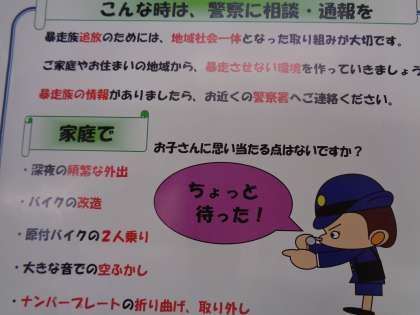 こんな時は、警察に相談・通報を
暴走族追放のためには、地域社会一体となった取り組みが大切です。
ご家庭やお住まいの地域から、暴走させない環境を作っていきましょう
暴走族の情報がありましたら、お近くの警察署へご連絡ください。
家庭で
お子さんに思い当たる点はないですか？
・深夜の頻繁な外出
・バイクの改造
・原付バイクの２人乗り
・大きな音での空ぶかし
・ナンバープレートの折り曲げ、取り外し
ちょっと
待った！